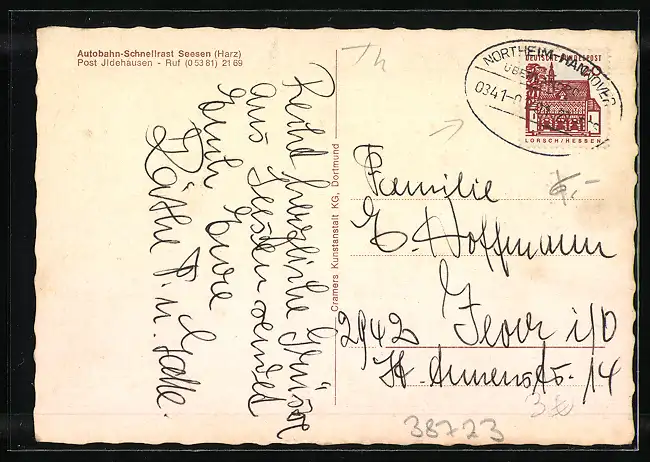 Autobahn-Schnellrast Seesen (Harz)
Post Jldehausen - Ruf (05381) 2169
Recht herzliche Grüsse
aus Seesen sendet
Euch Eure
Käthe P. u. Kalle.
Cramers Kunstanstalt KG, Dortmund
NORTHEIM-HANNOVER
0341-0
DEUTSCHE BUNDESPOST
LORSCH/HESSEN
Familie
E. Hoffmann
2942 Jever i/O
St. Annenstr. 14
38723